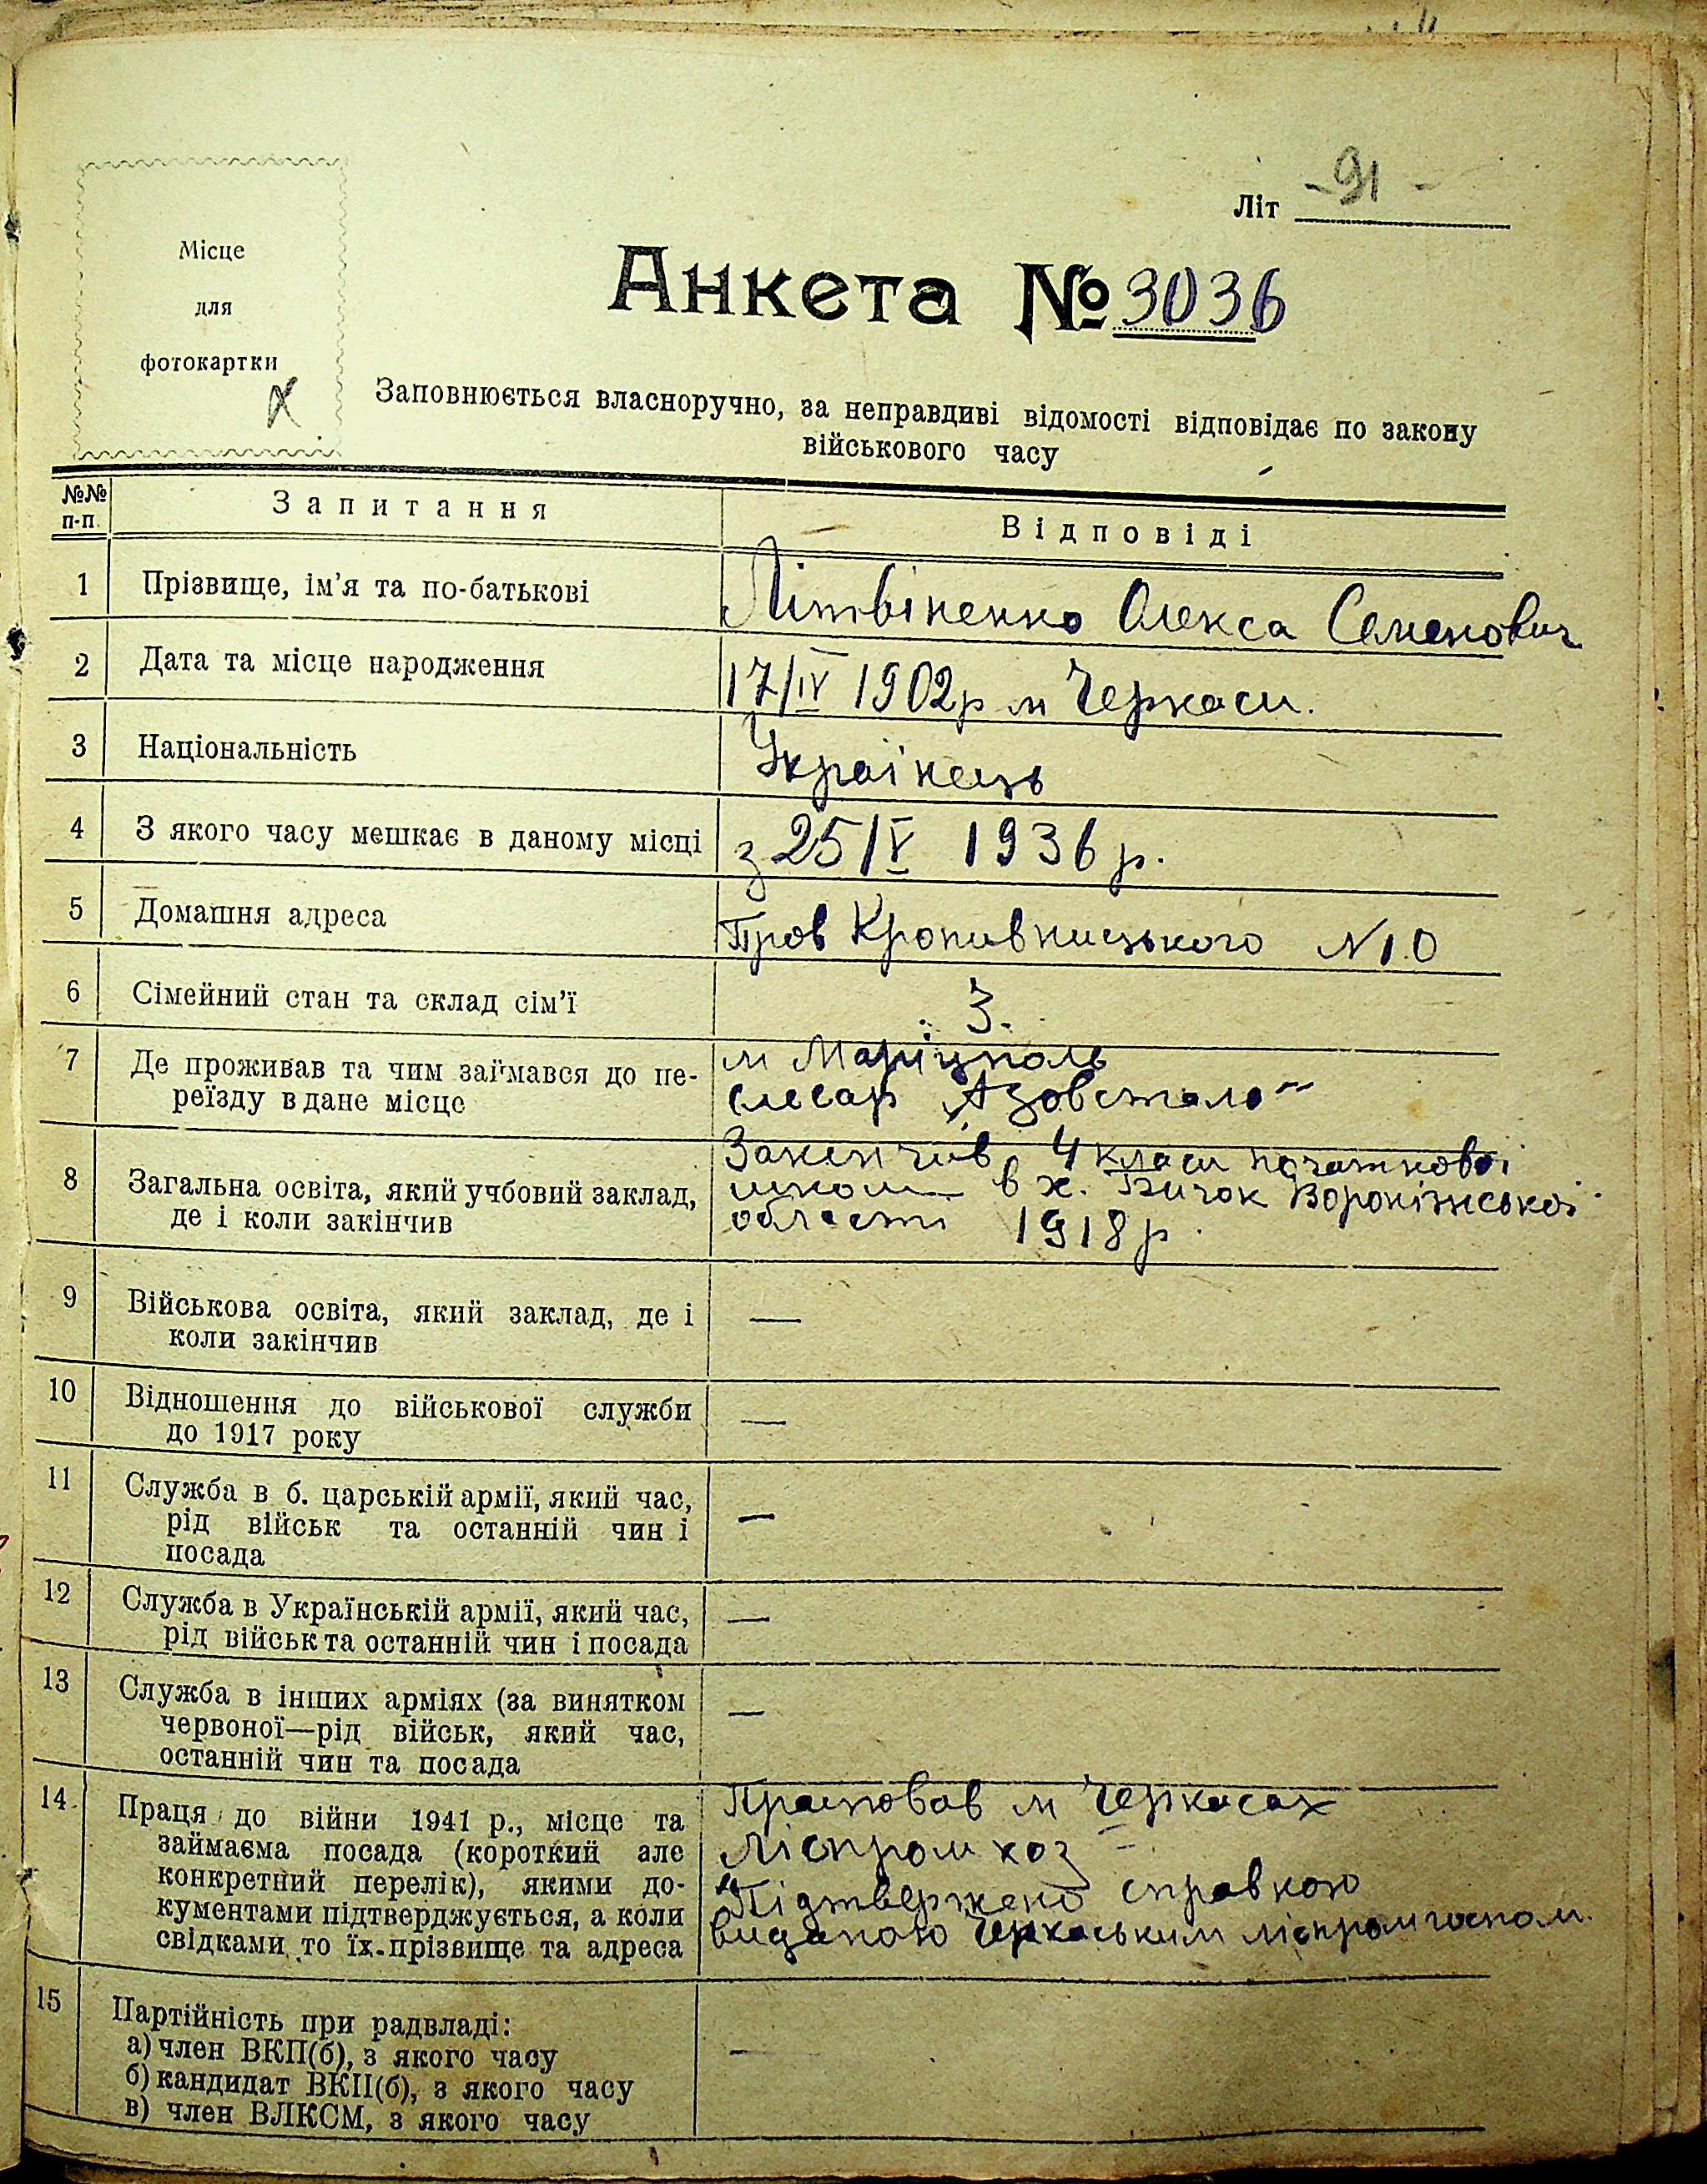 Літ -91-
Місце
для
фотокартки
Анкета № 3036
Заповнюється власноручно, за неправдиві відомості відповідає по закону
військового часу
№№ п-п.
Запитання
Відповіді
1 Прізвище, ім'я та по-батькові
Літвіненко Олекса Семенович
2 Дата та місце народження
17/IV 1902р м Черкаси.
3 Національність
Українець
4 З якого часу мешкає в даному місці
з 25/V 1936 р.
5 Домашня адреса
Пров Кропивницького №10
6 Сімейний стан та склад сім'ї
3.
7 Де проживав та чим займався до пе-
реїзду в дане місце
м Маріуполь
слесар „Азовсталь"
8 Загальна освіта, який учбовий заклад,
де і коли закінчив
Закінчив 4 класи початковоі
школи в х. Бичок Воронізськоі
області 1918 р.
9 Військова освіта, який заклад, де і
коли закінчив
—
10 Відношення до військової служби
до 1917 року
—
11 Служба в б. царській армії, який час,
рід військ та останній чин і
посада
—
12 Служба в Українській армії, який час,
рід військ та останній чин і посада
—
13 Служба в інших арміях (за винятком
червоної—рід військ, який час,
останній чин та посада
—
14. Праця до війни 1941 р., місце та
займаєма посада (короткий але
конкретний перелік), якими до-
кументами підтверджується, а коли
свідками, то їх прізвище та адреса
Працював м Черкасах
Ліспромхоз
Підтвержено справкою
виданою Черкаським ліспромгоспом.
15 Партійність при радвладі:
а) член ВКП(б), з якого часу
б) кандидат ВКП(б), з якого часу
в) член ВЛКСМ, з якого часу
—